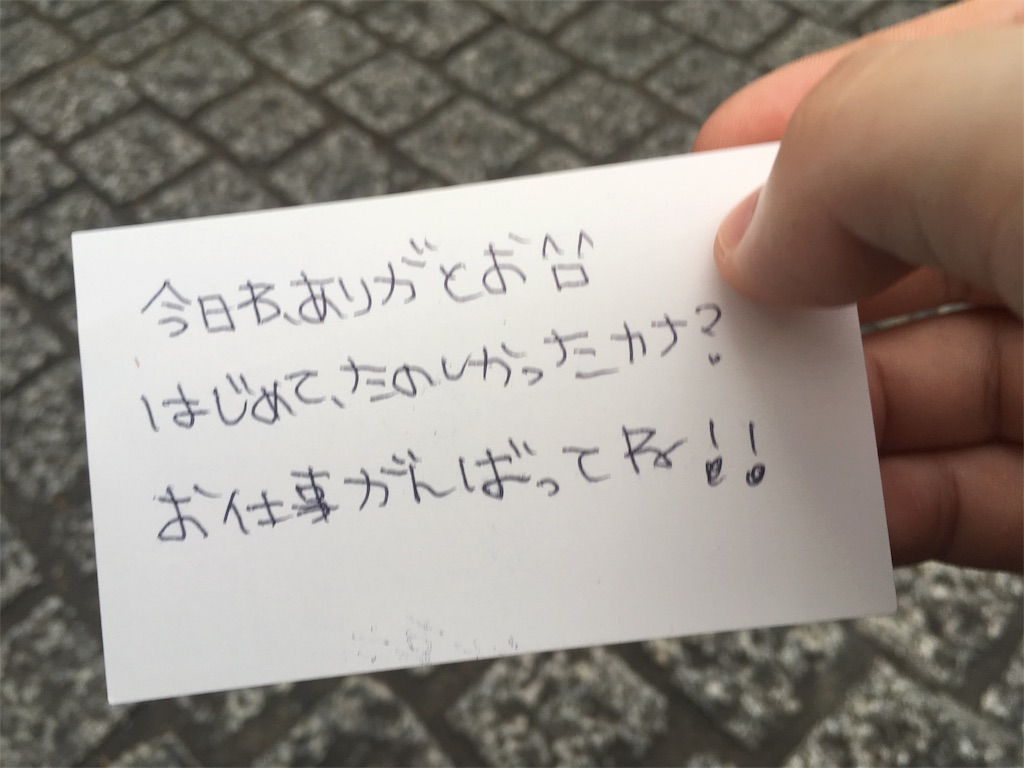 今日わ、ありがとお^ロ^
はじめて、たのしかったカナ?
お仕事がんばってね!!